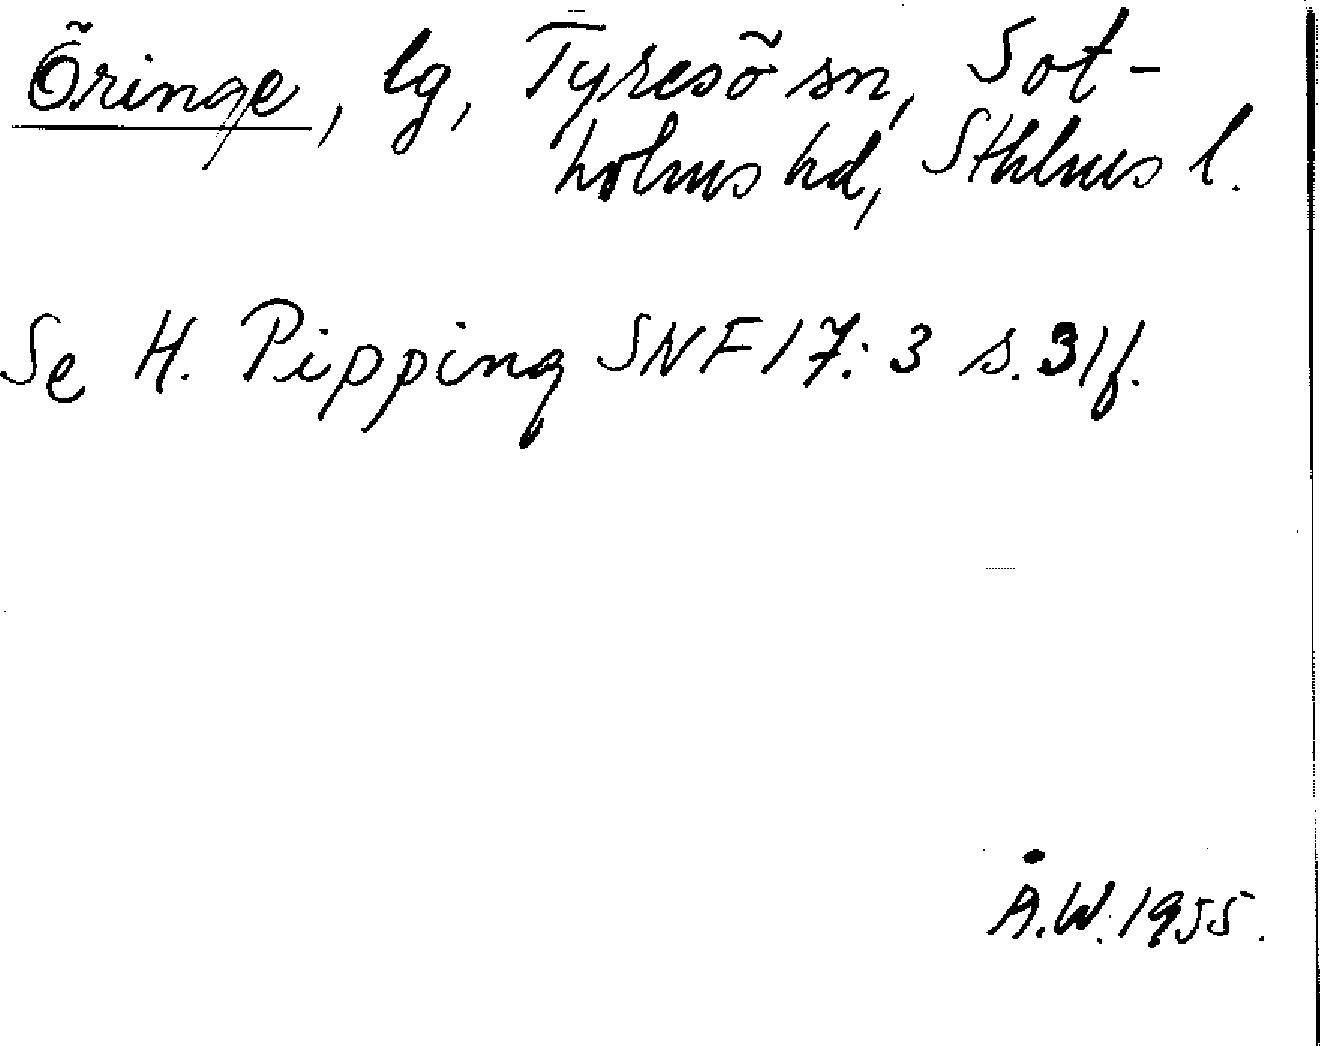 Öringe, lg, Tyresö sn, Sot-
holms hd, Sthlms l.
Se H. Pipping SNF 17:3 s. 31f.
Å.W. 1955.